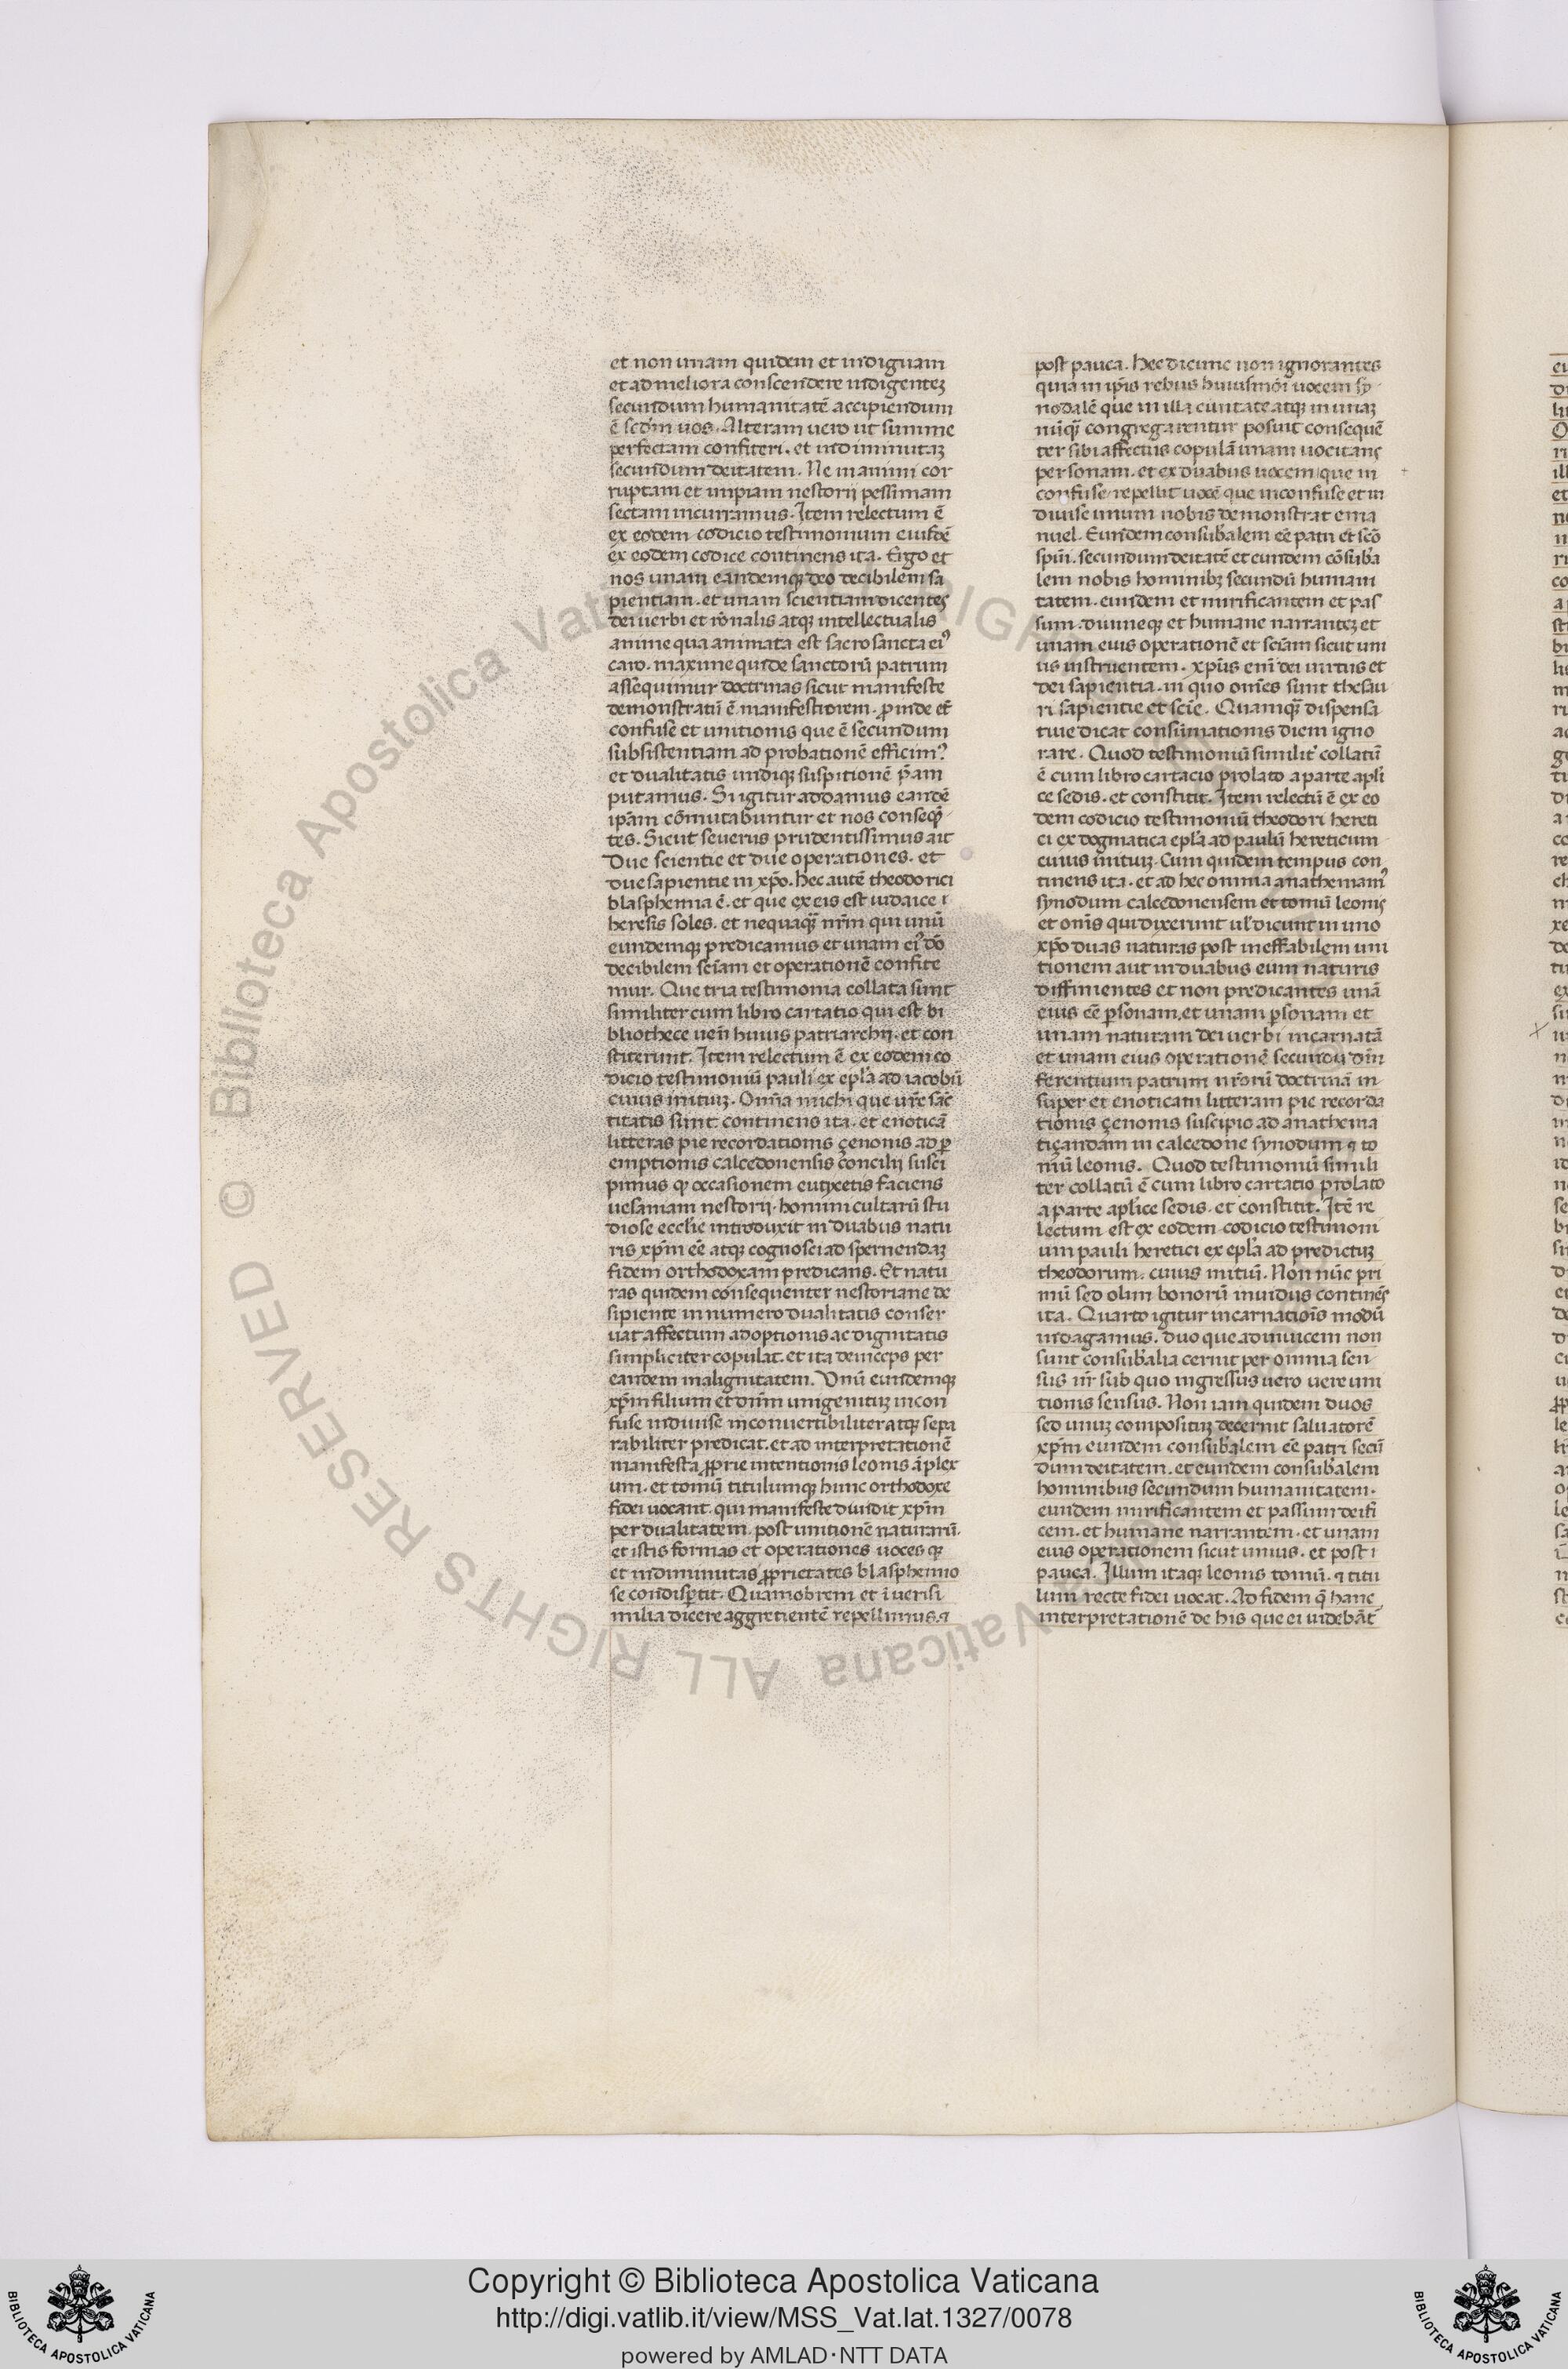 et non unam quidem et indignam
et ad meliora conscendere indigentez
secundum humanitatē accipiendum
ē scd̄m uos. Alteram uero ut summe
perfectam confiteri. et indiminutaꝫ
secundum deitatem. Ne in animi cor
ruptam et impiam nestorij pessimam
sectam incurramus. Item relectum ē
ex eodem codicio testimonium eiusdē
ex eodem codice continens ita. Ergo et
nos unam eandemqꝫ deo decibilem sa
pientiam. et unam scientiam dicentes
dei uerbi et rōnalis atqꝫ intellectualis
anime qua animata est sacrosancta eiꝰ
caro. maxime quide sanctorū patrum
assequimur doctrinas sicut manifeste
demonstratū ē manifestiorem. ꝓinde et
confuse et unitionis que ē secundum
subsistentiam ad probationē efficimꝰ
et dualitatis undiqꝫ suspitionē p̄am
putamus. Si igitur addamus eandē
ip̄am cōmutabuntur et nos conseqn̄
tes. Sicut seuerus prudentissimus ait
Due scientie et due operationes. et
due sapientie in xp̄o. hec autē theodorici
blasphemia ē. et que ex eis est iudaice
heresis soles. et nequaquā nr̄m qui unū
eundemqꝫ predicamus et unam eiꝰ dō
decibilem sciam et operationē confite
mur. Que tria testimonia collata sunt
similiter cum libro cartatio qui est bi
bliothece uen̄ huius patriarchij. et con
stiterunt. Item relectum ē ex eodem co
dicio testimoniū pauli ex epl̄a ad iacobū
cuius initiuꝫ. Omīa michi que ur̄e sāc
titatis sunt continens ita. et enoticā
litteras pie recordationis çenonis ad ꝑ
emptionis calcedonensis concilij susci
pimus qꝫ occasionem eutycetis faciens
uesaniam nestorij. hominicultarū stu
diose eccl̄ie introduxit in duabus natu
ris xp̄m eē̄ atqꝫ cognosci ad spernendaꝫ
fidem orthodoxam predicans. Et natu
ras quidem consequenter nestoriane de
sipiente in numero dualitatis conser
uat affectum adoptionis ac dignitatis
simpliciter copulat. et ita deinceps per
eandem malignitatem. Vnū eundemqꝫ
xp̄m filium et dn̄m unigenituꝫ incon
fuse indiuise inconuertibiliter atqꝫ sepa
rabiliter predicat. et ad interpretationē
manifesta ꝓprie intentionis leonis āplex
um. et tomū titulumqꝫ hunc orthodoxe
fidei uocant. qui manifeste diuidit xp̄m
per dualitatem. post unitionē naturarū.
et istis formas et operationes uoces qꝫ
et indiminutas ꝓprietates blasphemio
se condisꝑtit. Quamobrem et ī uerisi
milia dicere aggretientē repellimus. ⁊
post pauca. hec dicunt non ignorantes
quia in ip̄is rebus huiusmōi uocem sy
nodalē que in illa ciuitate atqꝫ in unaꝫ
nūqꝫ congregarentur posuit consequē
ter sibi affectus copulā unam uocitans
personam. et ex duabus uocem que in
confuse repellit uocē que inconfuse et in
diuise unum nobis demonstrat ema
nuel. Eundem consub̄alem eē patri et scō
spūi. secundum deitatē et eundem cōsub̄a
lem nobis hominibꝫ secundū humani
tatem. eundem et mirificantem et pas
sum. diuineqꝫ et humane narrantez et
unam eius operationē et sciām sicut uni
us instruentem. xp̄us enī dei uirtus et
dei sapientia. in quo om̄es sunt thesau
ri sapientie et scīe. Quamqꝫ dispensa
tiue dicat consūmationis diem igno
rare. Quod testimoniū similit̄ collatū
ē cum libro cartacio prolato a parte apl̄i
ce sedis. et constitit. Item relectū ē ex eo
dem codicio testimoniū theodori hereti
ci ex dogmatica epl̄a ad paulū hereticum
cuius initiuꝫ. Cum quidem tempus con
tinens ita. et ad hec omnia anathemamꝰ
synodum calcedonensem et tomū leonis
et om̄s qui dixerunt ul̄ dicunt in uno
xp̄o duas naturas post ineffabilem uni
tionem aut in duabus eum naturis
diffinientes et non predicantes unā
eius eē ꝑsonam. et unam ꝑsonam et
unam naturam dei uerbi incarnatā
et unam eius operationē secundū dīn
ferentium patrum nr̄orū doctrinā in
super et enoticam litteram pie recorda
tionis çenonis suscipio ad anathema
tiçandam in calcedone synodum ⁊ to
mū leonis. Quod testimoniū simili
ter collatū ē cum libro cartatio prolato
a parte apl̄ice sedis. et constitit. Itē re
lectum est ex eodem codicio testimoni
um pauli heretici ex epl̄a ad predictuꝫ
theodorum. cuius initiū. Non nūc pri
mū sed olim bonorū inuidus continēs
ita. Quarto igitur incarnatiōis modū
indagamus. duo que adinuicem non
sunt consub̄alia cernit per omnia sen
sus nr̄ sub quo ingressus uero uere uni
tionis sensus. Non iam quidem duos
sed unuꝫ compositūꝫ decernit saluatorē
xp̄m eundem consub̄alem eē patri secū
dum deitatem. et eundem consub̄alem
hominibus secundum humanitatem.
eundem mirificantem et passum deifi
cem. et humane narrantem. et unam
eius operationem sicut unius. et post
pauca. Illum itaqꝫ leonis tomū. ⁊ titu
lum recte fidei uocat. Ad fidem q̄ hanc
interpretationē de his que ei uidebāt
© Biblioteca Apostolica Vaticana ALL RIGHTS RESERVED
Copyright © Biblioteca Apostolica Vaticana
http://digi.vatlib.it/view/MSS_Vat.lat.1327/0078
powered by AMLAD·NTT DATA
BIBLIOTECA APOSTOLICA VATICANA
BIBLIOTECA APOSTOLICA VATICANA